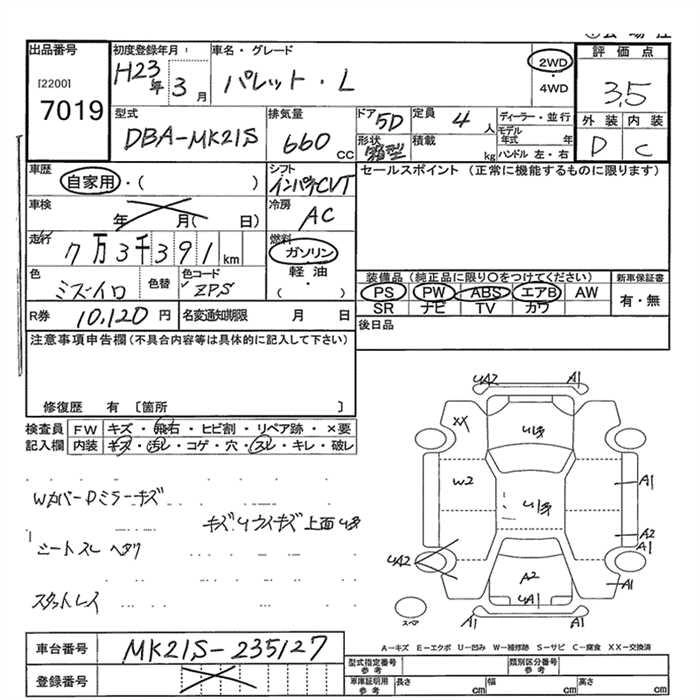 出品番号
[2200]
7019
初度登録年月
H23年 3月
車名・グレード
パレット・L
2WD
・
4WD
評価点
3.5
外装 内装
D C
型式
DBA-MK21S
排気量
660 CC
ドア 5D
形状 箱型
定員 4 人
積載 kg
ディーラー・並行
モデル年式 年
ハンドル 左・右
車歴
自家用・( )
シフト
インパネCVT
セールスポイント(正常に機能するものに限ります)
車検
年 月( 日)
冷房
AC
走行
7万3千391 km
燃料
ガソリン
軽油
( ・ )
色
ミズイロ
色替
色コード
ZPS
装備品(純正品に限り○をつけてください)
PS PW ABS エアB AW
SR ナビ TV カワ
新車保証書
有・無
R券 10,120 円
名変通知期限 月 日
後日品
注意事項申告欄(不具合内容等は具体的に記入して下さい)
修復歴 有 〔箇所 〕
検査員記入欄
FW キズ・飛石・ヒビ割・リペア跡・×要
内装 キズ・汚レ・コゲ・穴・スレ・キレ・破レ
WカバーDミラーキズ
キズUウスキズ上面U多
シートスレ ヘタリ
スタットレス
UA2 A1
XX U多
W2 U多 A1
A2
A1
UA2
A2
UA1 A1
A1
スペア
A-キズ E-エクボ U-凹み W-補修跡 S-サビ C-腐食 XX-交換済
車台番号 MK21S-235127
登録番号
型式指定番号 参考
類別区分番号 参考
車庫証明用 参考
長さ cm 幅 cm 高さ cm